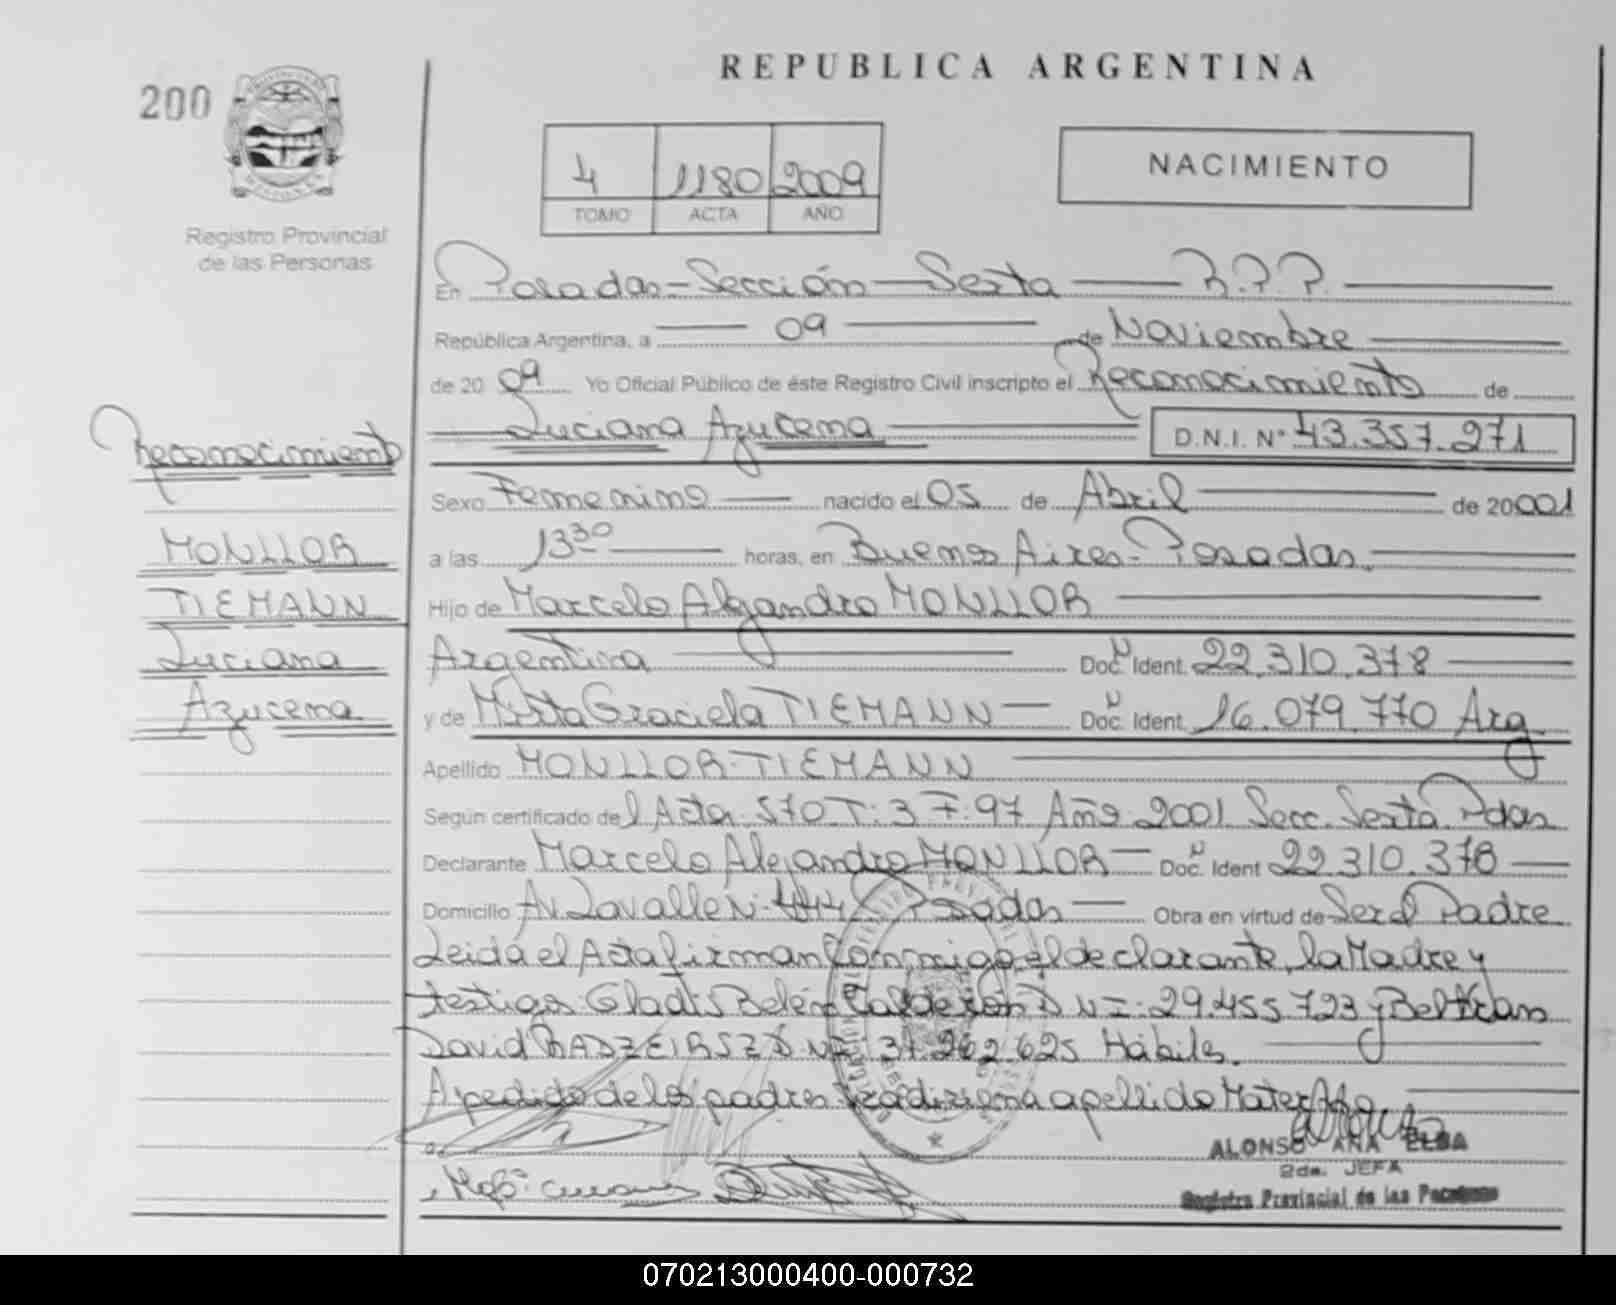 REPUBLICA ARGENTINA
200
4 1180 2009
TOMO ACTA AÑO
NACIMIENTO
Registro Provincial
de las Personas
En Posadas-Sección-Sexta R.P.P.
República Argentina, a 09 de Noviembre
de 20 09 Yo Oficial Público de éste Registro Civil inscripto el Reconocimiento de
Luciana Azucena D.N.I. N° 43.357.271
Reconocimiento
Sexo Femenino nacido el 05 de Abril de 20001
MONLLOR
a las 13 30 horas, en Buenos Aires-Posadas.
TIEMANN
Hijo de Marcelo Alejandro MONLLOR
Luciana
Argentina Doc. Ident. 22.310.378
Azucena
y de Mirta Graciela TIEMANN Doc. Ident. 16.079.770 Arg
Apellido MONLLOR-TIEMANN
Según certificado del Acta: 570 T: 3 F: 97 Año: 2001 Secc. Sexta Pdas
Declarante Marcelo Alejandro MONLLOR Doc. Ident 22.310.378
Domicilio Av. Lavalle N: 444 Posadas Obra en virtud de Ser el Padre
Leida el Acta firman Conmigo el declarante, la Madre y
testigos: Gladis Belén Calderón DNI: 29.455.723 y Beltran
David DNI: 37.262.625 Hábiles.
A pedido de los padres apellido Materno
ALONSO ANA ELBA
2da. JEFA
Registro Provincial de las Personas
070213000400-000732